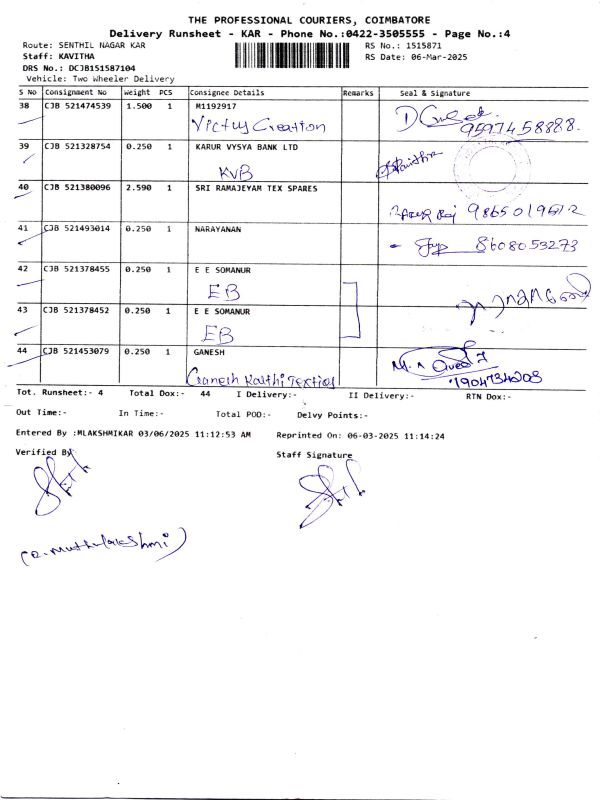 THE PROFESSIONAL COURIERS, COIMBATORE
Delivery Runsheet - KAR - Phone No.:0422-3505555 - Page No.:4
Route: SENTHIL NAGAR KAR RS No.: 1515871
Staff: KAVITHA RS Date: 06-Mar-2025
DRS No.: DCJB151587104
Vehicle: Two Wheeler Delivery
S No Consignment No Weight PCS Consignee Details Remarks Seal & Signature
38 CJB 521474539 1.500 1 M1192917
Victuy Creation 9597458888.
39 CJB 521328754 0.250 1 KARUR VYSYA BANK LTD
KVB
40 CJB 521380096 2.590 1 SRI RAMAJEYAM TEX SPARES
41 CJB 521493014 0.250 1 NARAYANAN
8608053273
42 CJB 521378455 0.250 1 E E SOMANUR
EB
43 CJB 521378452 0.250 1 E E SOMANUR
EB
44 CJB 521453079 0.250 1 GANESH
Ganesh
Tot. Runsheet:- 4 Total Dox:- 44 I Delivery:- II Delivery:- RTN Dox:-
Out Time:- In Time:- Total POD:- Delvy Points:-
Entered By :MLAKSHMIKAR 03/06/2025 11:12:53 AM Reprinted On: 06-03-2025 11:14:24
Verified By Staff Signature